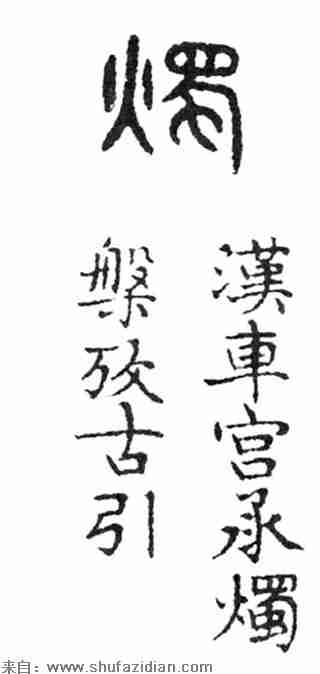 燭
漢車宮承燭
槃攷古引
来自：www.shufazidian.com